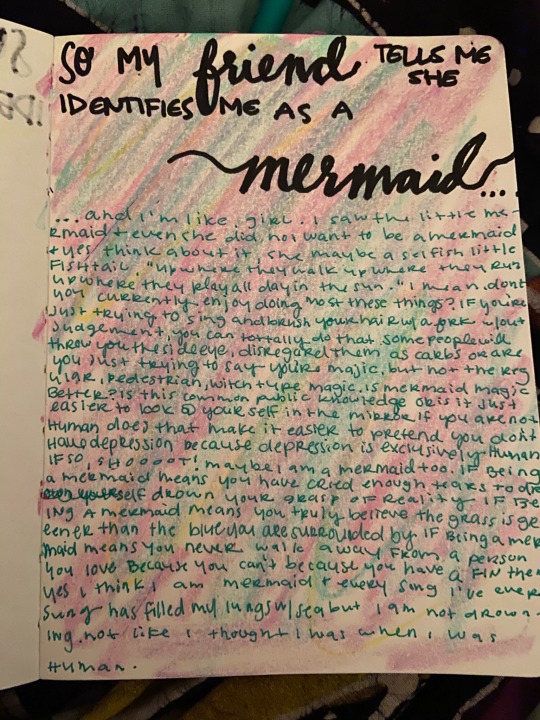 SO MY friend TELLS ME
SHE
IDENTIFIES ME AS A
mermaid...
...and I'm like girl. I saw the little me-
rmaid + even she did not want to be a mermaid
+ yes think about it, she maybe a selfish little
FISH tail "up where they walk up where they run
up where they play all day in the sun." I mean dont
you currently enjoy doing most these things? IF you're
Just trying to sing and brush your hair w/a fork w/out
Judgement, you can tottally do that some people will
throw you the side eye, disregard them as carbs or are
you Just trying to say your majic, but not the reg
ular, pedestrian, witch type magic. is mermaid magic
Better? is this common public knowledge or is it Just
easier to look @ your self in the mirror if you are not
Human does that make it easier to pretend you don't
Have depression because depression is exclusively Human
IF SO, SHOOOT! maybe I am a mermaid too. IF Being
a mermaid means you have cried enough tears to dro
yourself drown your grasp of Reality IF BE
ING A mermaid means you truly believe the grass is gr
eener than the blue you are surrounded by IF Being a mer
maid means you never walk away From a person
you love Because you can't because you have a FIN then
yes I think I am mermaid + every song I've ever
sung has filled my lungs w/sea but I am not drown-
ing. not like I thought I was when I was
Human.